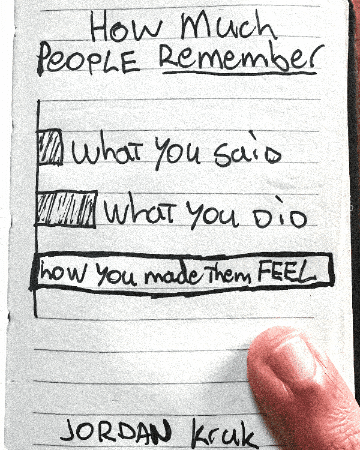 How Much
PEOPLE Remember
What You Said
What You DID
how you made them FEEL
JORDAN Kruk